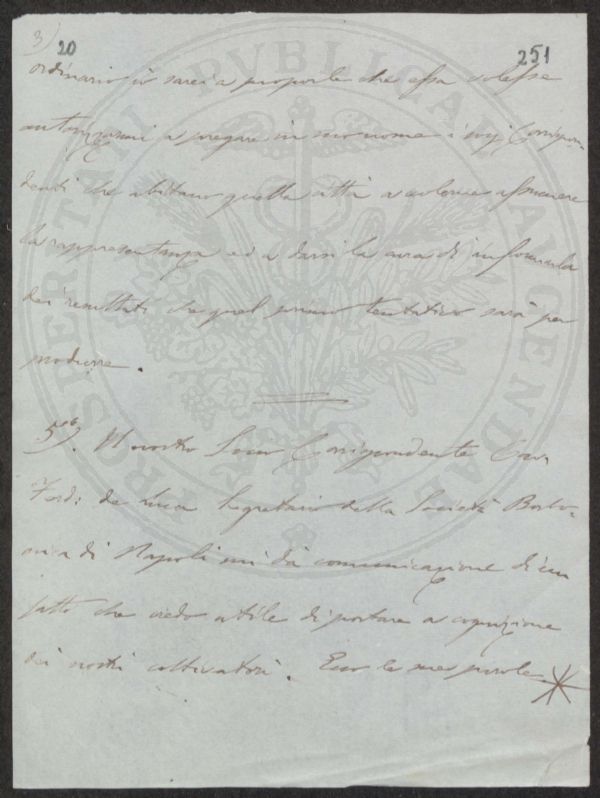 3) 20 251
ordinario io sarei a proporle che essa volesse
autorizzarmi a pregare in suo nome i suoi Corrispon-
denti che abitano quella città a volerne assumere
la rappresentanza ed a darsi la cura di informarla
dei resultati che quel primo tentativo sarà per
produrre.
5°). Il nostro Socio Corrispondente Cav.
Ferd: de Luca Segretario della Società Borbo-
nica di Napoli mi dà comunicazione di un
fatto che credo utile di portare a cognizione
dei nostri coltivatori. Ecco le sue parole
PROSPERITATI PVBLICAE AVGENDAE